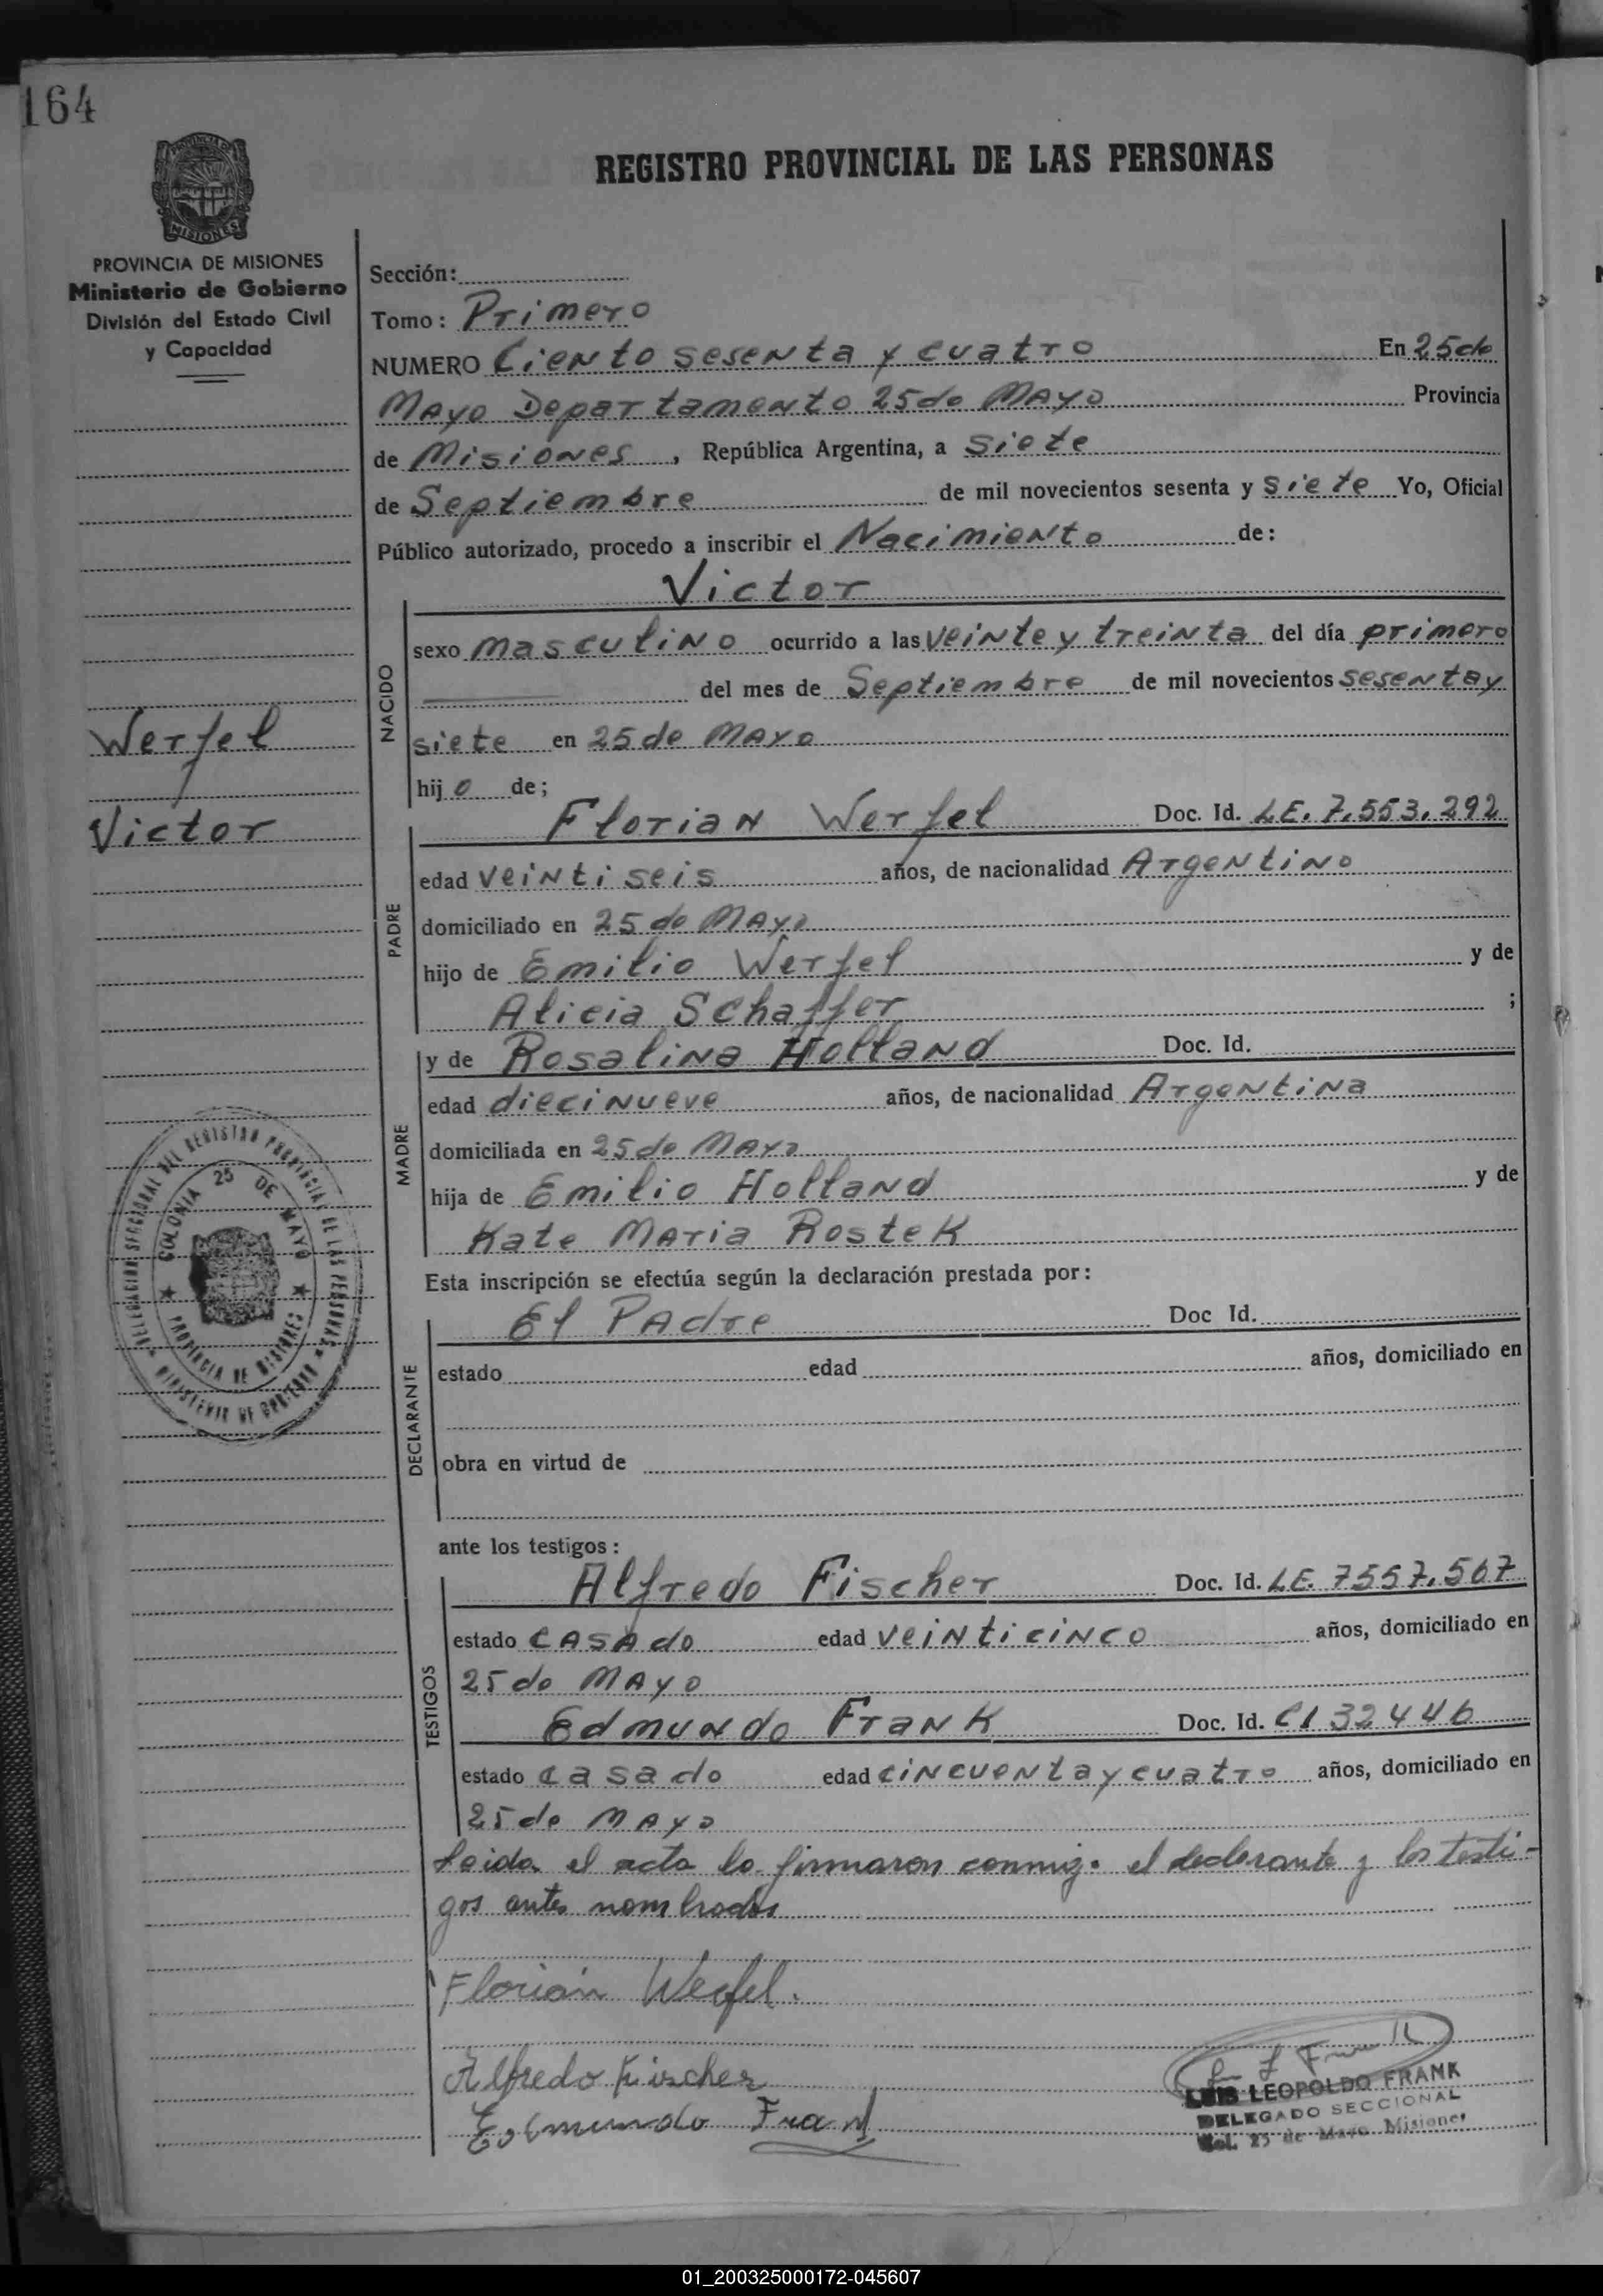 164
PROVINCIA DE
MISIONES
REGISTRO PROVINCIAL DE LAS PERSONAS
PROVINCIA DE MISIONES
Ministerio de Gobierno
División del Estado Civil
y Capacidad
Sección:
Tomo: Primero
NUMERO Ciento sesenta y cuatro En 25 de
Mayo Departamento 25 de Mayo Provincia
de Misiones, República Argentina, a siete
de Septiembre de mil novecientos sesenta y siete Yo, Oficial
Público autorizado, procedo a inscribir el Nacimiento de:
Victor
NACIDO
sexo masculino ocurrido a las veinte y treinta del día primero
del mes de Septiembre de mil novecientos sesenta y
siete en 25 de Mayo
hijo de;
Werfel
Victor
PADRE
Florian Werfel Doc. Id. LE. 7.553.292
edad veintiseis años, de nacionalidad Argentino
domiciliado en 25 de Mayo
hijo de Emilio Werfel y de
Alicia Schaffer ;
MADRE
y de Rosalina Holland Doc. Id.
edad diecinueve años, de nacionalidad Argentina
domiciliada en 25 de Mayo
hija de Emilio Holland y de
Kate Maria Rostek
DELEGACION SECCIONAL DEL REGISTRO PROVINCIAL DE LAS PERSONAS
MINISTERIO DE GOBIERNO
COLONIA 25 DE MAYO
PROVINCIA DE MISIONES
Esta inscripción se efectúa según la declaración prestada por:
DECLARANTE
El Padre Doc Id.
estado edad años, domiciliado en
obra en virtud de
ante los testigos:
TESTIGOS
Alfredo Fischer Doc. Id. LE. 7557.567
estado casado edad veinticinco años, domiciliado en
25 de Mayo
Edmundo Frank Doc. Id. CI 32446
estado casado edad cincuenta y cuatro años, domiciliado en
25 de Mayo
Leida el acta la firmaron conmigo el declarante y los testi-
gos antes nombrados
Florián Werfel.
Alfredo Fischer
Edmundo Frank
LUIS LEOPOLDO FRANK
DELEGADO SECCIONAL
Col. 25 de Mayo Misiones
01_200325000172-045607